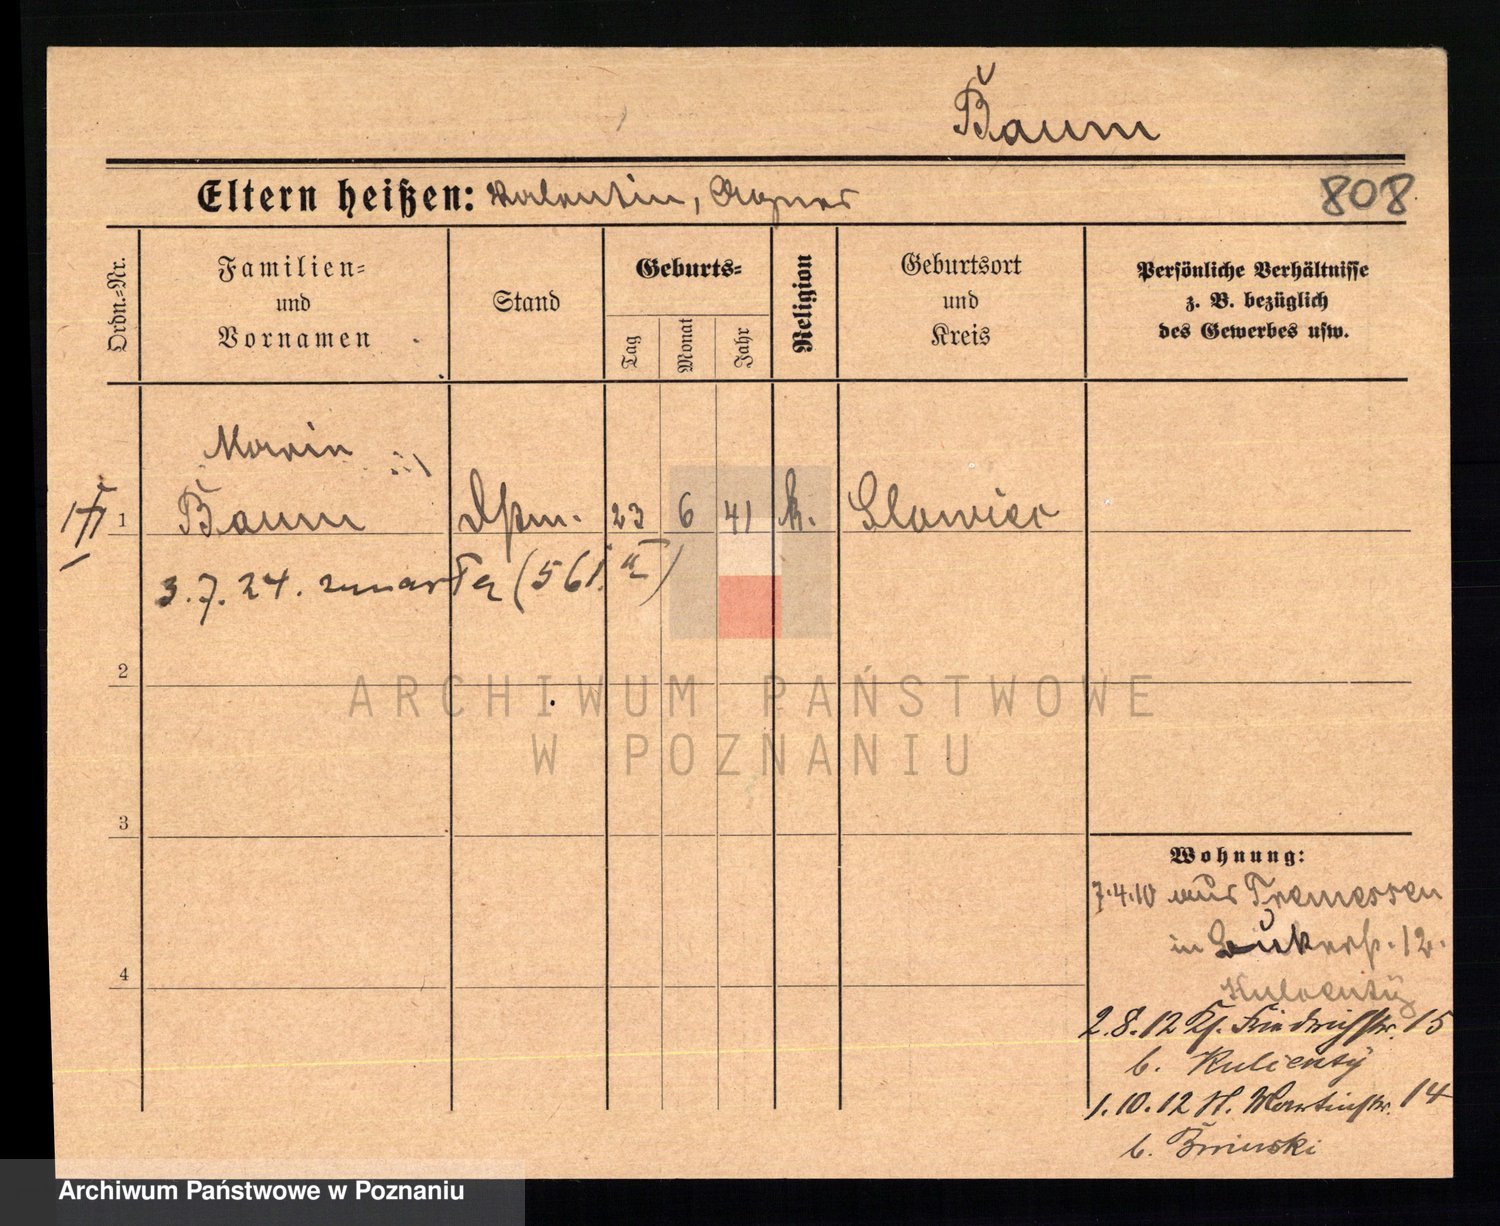 Baum
Eltern heißen: Valentin, Agnes
808
Ordn.-Nr.
Familien-
und
Vornamen
Stand
Geburts-
Tag
Monat
Jahr
Religion
Geburtsort
und
Kreis
Persönliche Verhältnisse
z. B. bezüglich
des Gewerbes usw.
1
Baum
23
6
41
k.
3.7.24. zmarła (561
2
ARCHIWUM PAŃSTWOWE
W POZNANIU
3
4
Wohnung:
7.4.10 aus Tremessen
in
12.
2.8.12 Kl. Friedrichstr. 15
b.
1.10.12 St. Martinstr. 14
b.
Archiwum Państwowe w Poznaniu